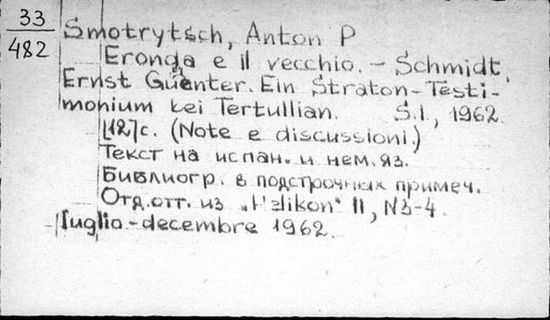 33
482
Smotrytsch, Anton P
Eronda e il vecchio. - Schmidt,
Ernst Güenter. Ein Straton-Testi-
monium bei Tertullian. S.l., 1962.
[12]c. (Note e discussioni.)
Текст на испан. и нем. яз.
Библиогр. в подстрочных примеч.
Отд. отт. из „Helikon" II, N3-4.
luglio-decembre 1962.